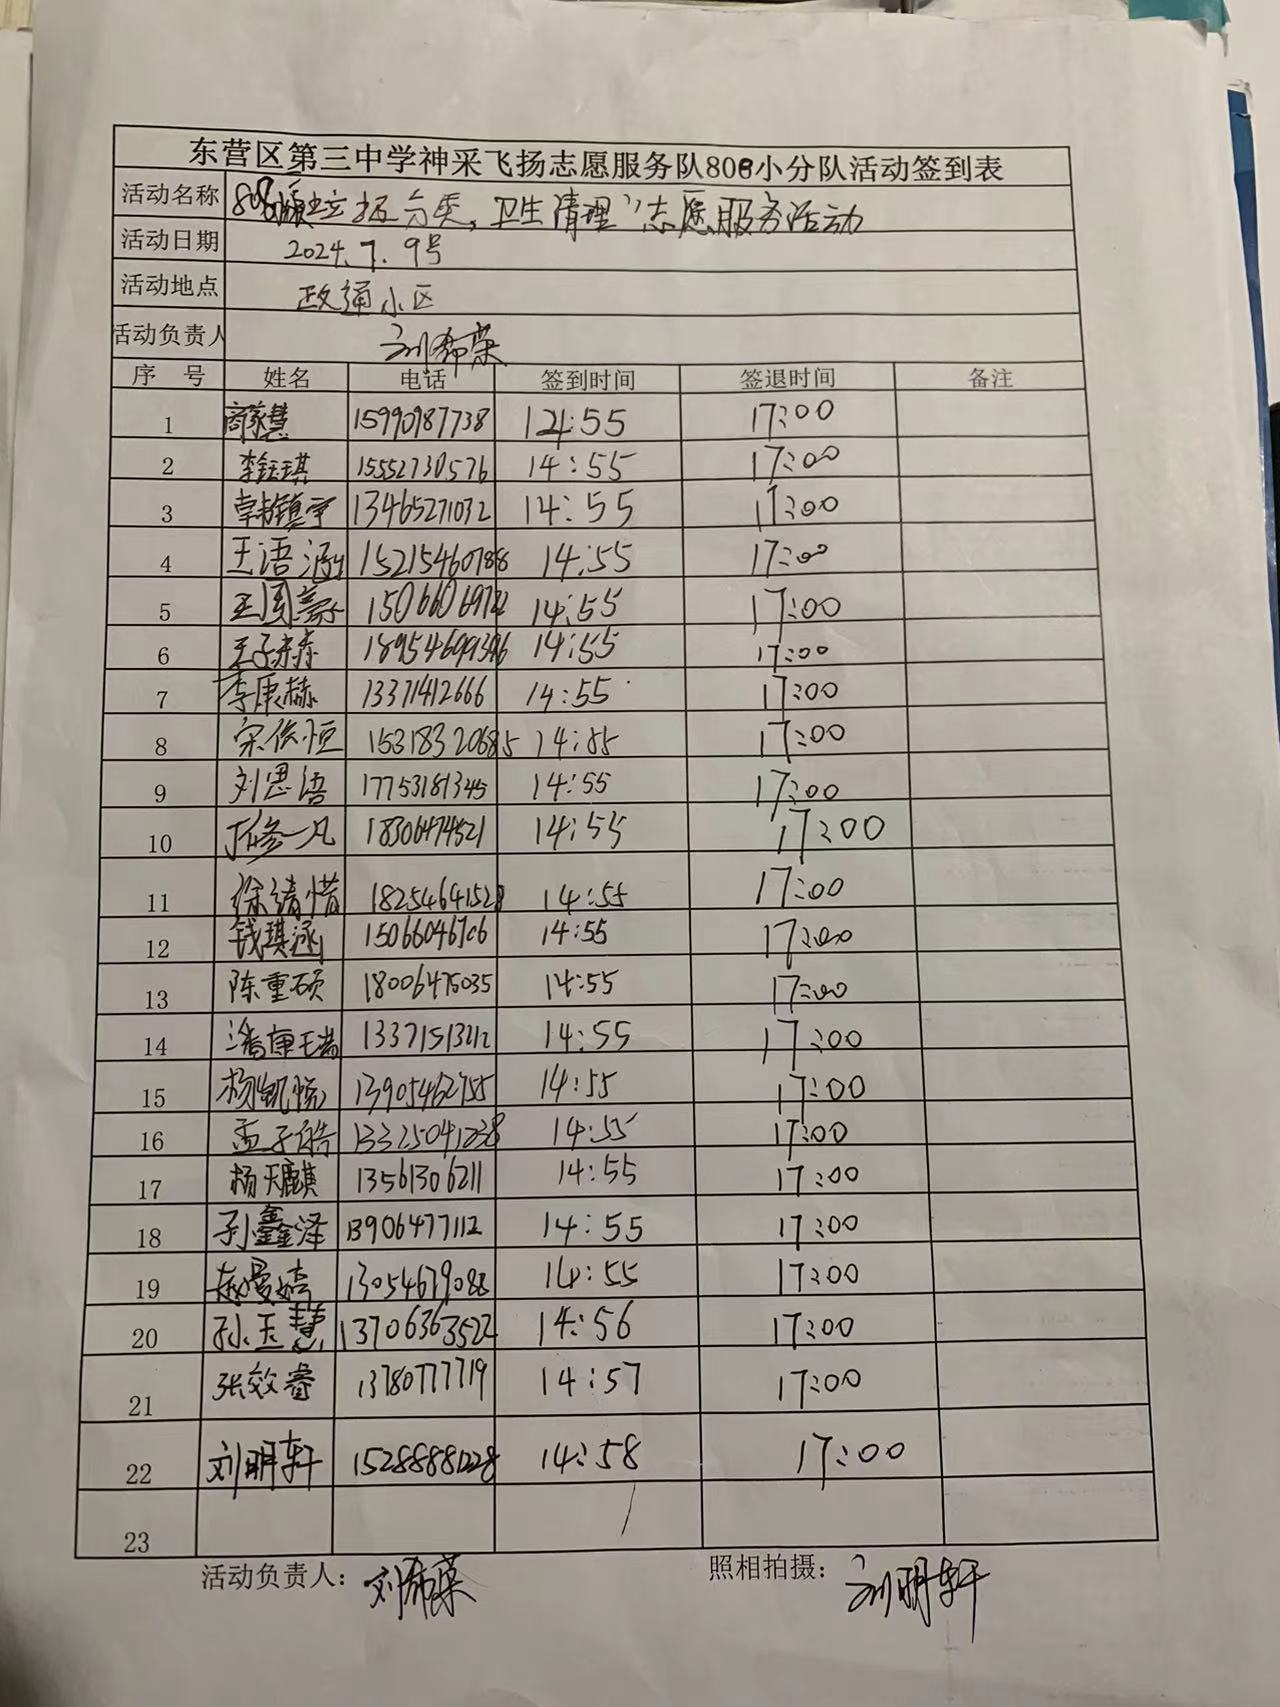 东营区第三中学神采飞扬志愿服务队808小分队活动签到表
活动名称 分类，卫生清理”志愿服务活动
活动日期 2024.7.9号
活动地点 政通小区
活动负责人 刘希荣
序 号 姓名 电话 签到时间 签退时间 备注
1 商家慧 15990987738 14:55 17:00
2 李钰琪 15552730576 14:55 17:00
3 韩镇宇 13465271032 14:55 17:00
4 王语涵 15215460788 14:55 17:00
5 14:55 17:00
6 14:55 17:00
7 李康赫 13371412666 14:55 17:00
8 宋依恒 15318320685 14:55 17:00
9 刘思语 17753181345 14:55 17:00
10 修一凡 18306474521 14:55 17:00
11 徐靖惜 18254641528 14:55 17:00
12 钱琪涵 15066046706 14:55 17:00
13 陈重硕 18006475035 14:55 17:00
14 14:55 17:00
15 13905462755 14:55 17:00
16 孟子皓 14:55 17:00
17 杨天麒 13561306211 14:55 17:00
18 孙鑫泽 13906477112 14:55 17:00
19 14:55 17:00
20 孙玉慧 13706363522 14:56 17:00
21 张效睿 13780777719 14:57 17:00
22 刘明轩 15288881228 14:58 17:00
23 /
活动负责人： 刘希荣 照相拍摄： 刘明轩